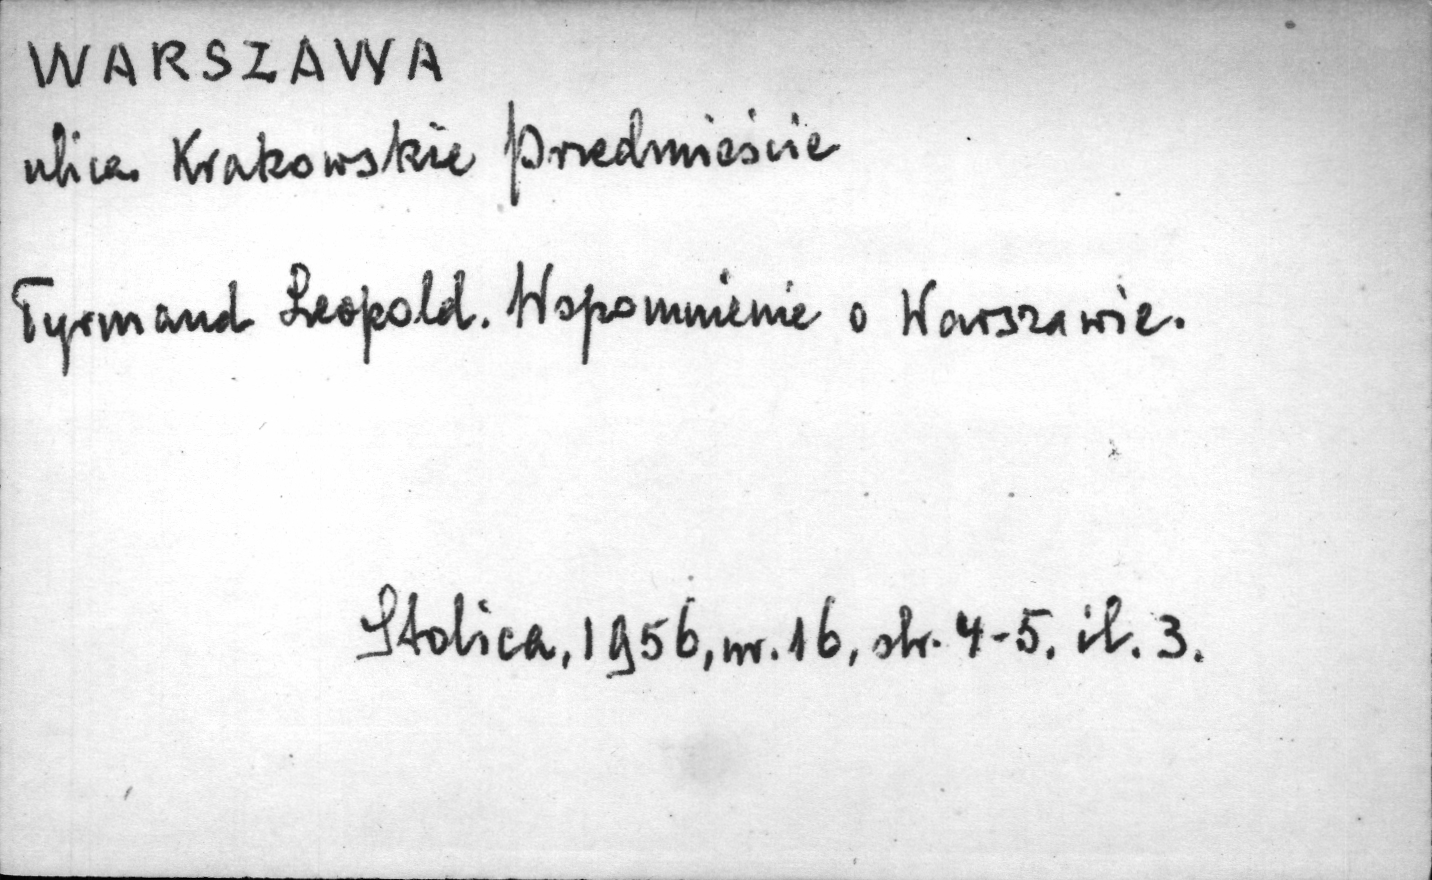 WARSZAWA
ulica Krakowskie Przedmieście
Tyrmand Leopold. Wspomnienie o Warszawie.
Stolica, 1956, nr. 16, str. 4-5. il. 3.